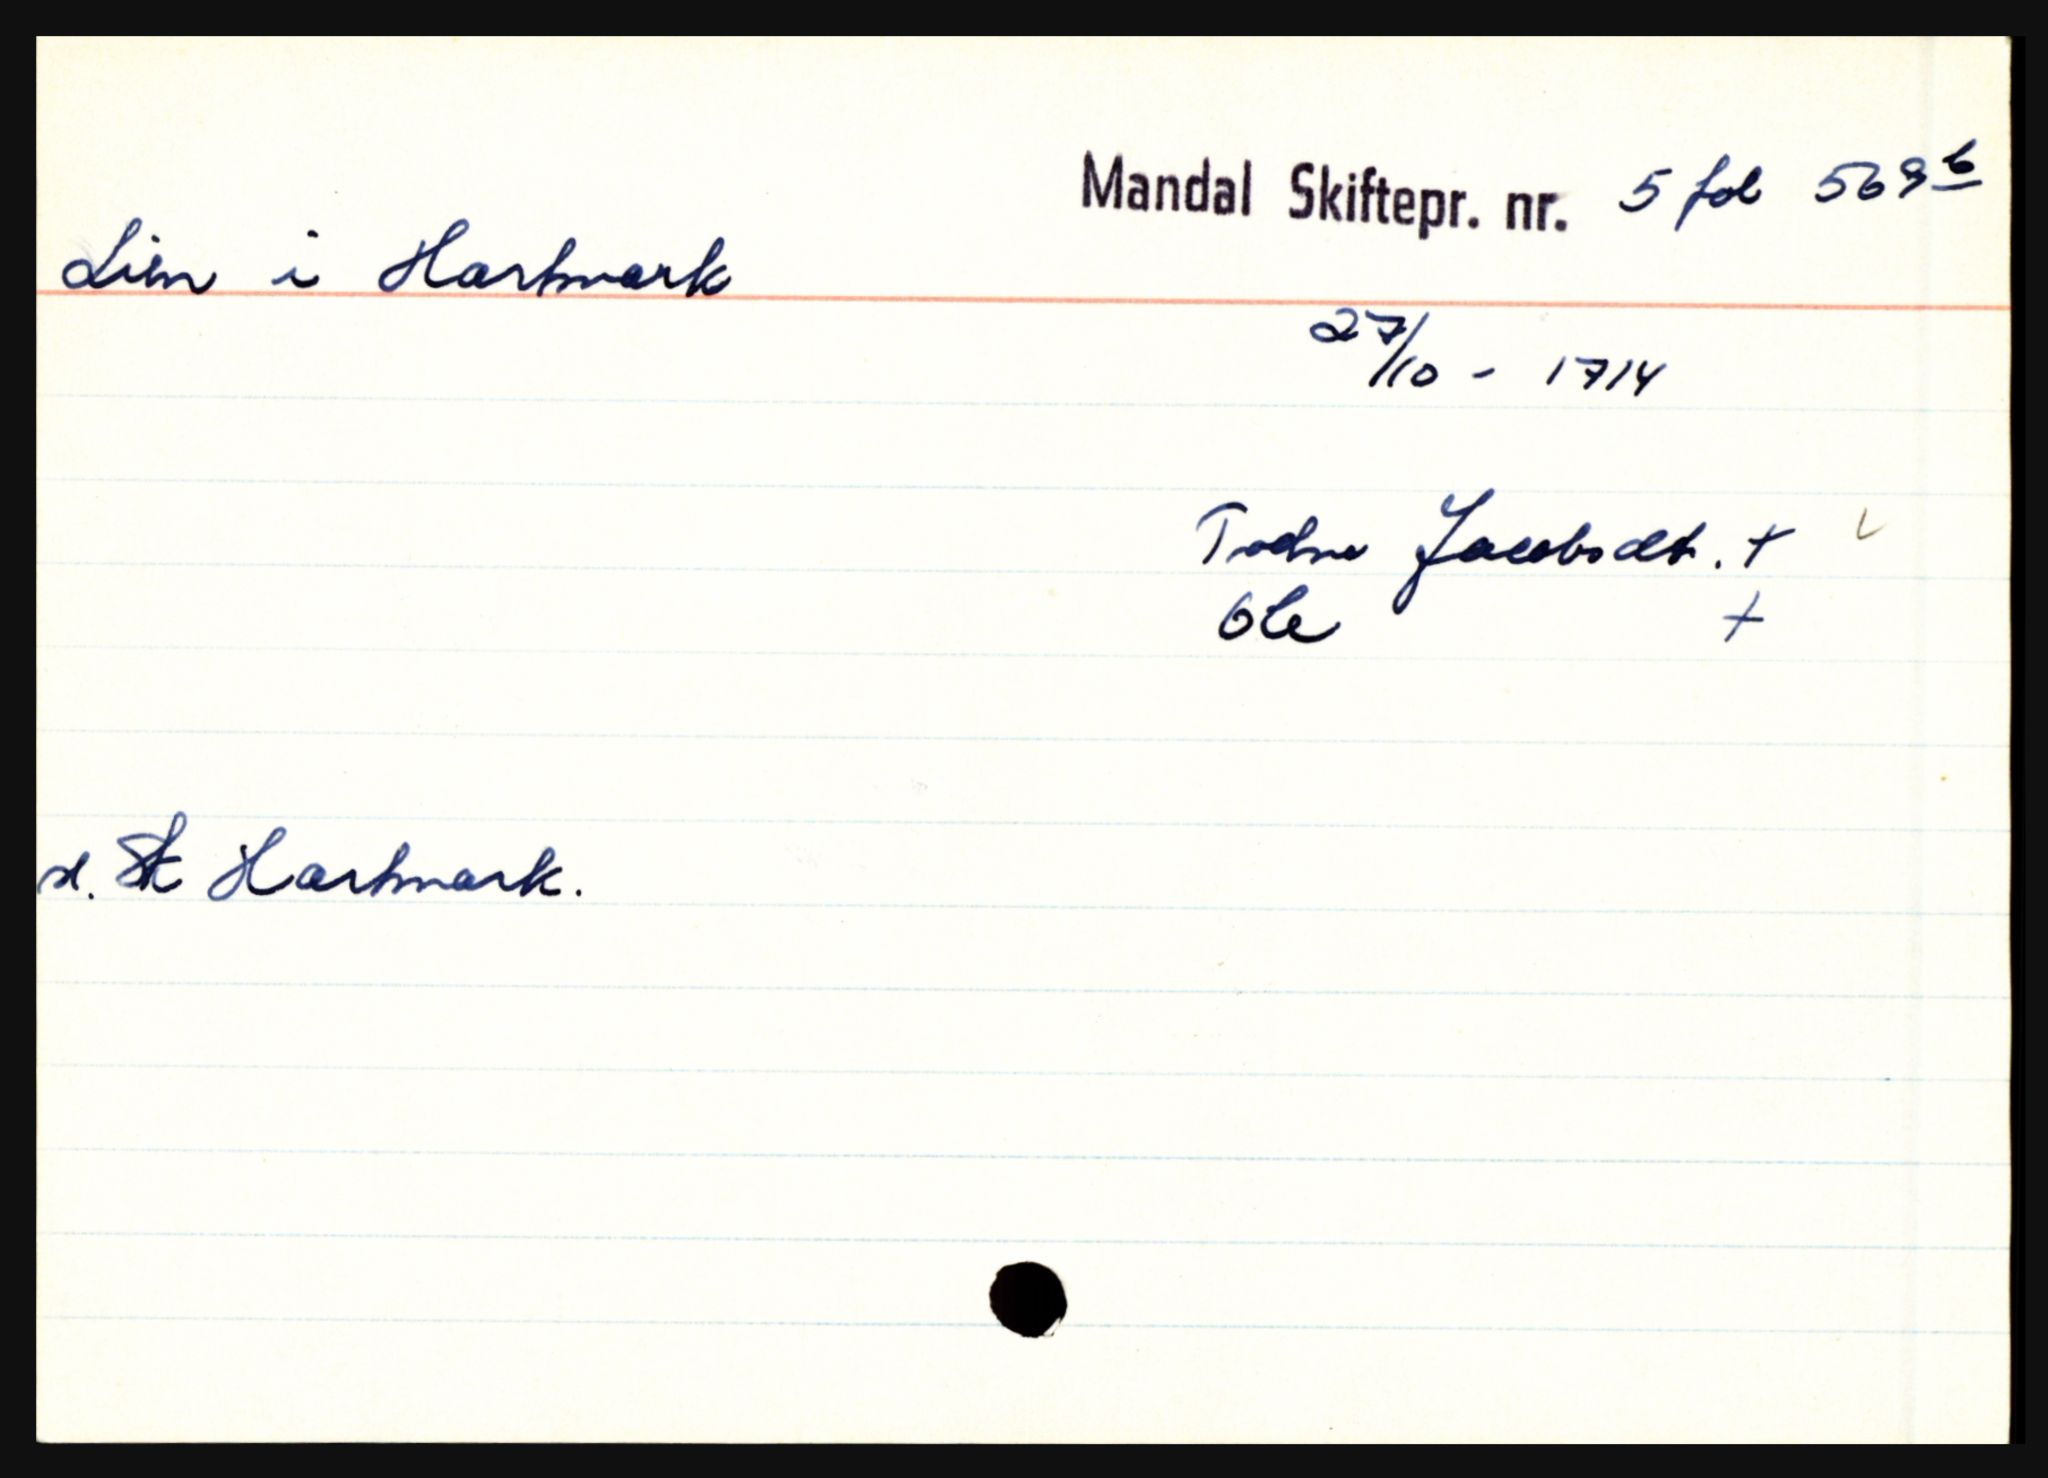 Mandal Skiftepr. nr. 5 fol 569 b
Lien i Hartmark
27/10 - 1714
Todne Jacobsdt. +
Ole +
Hartmark.